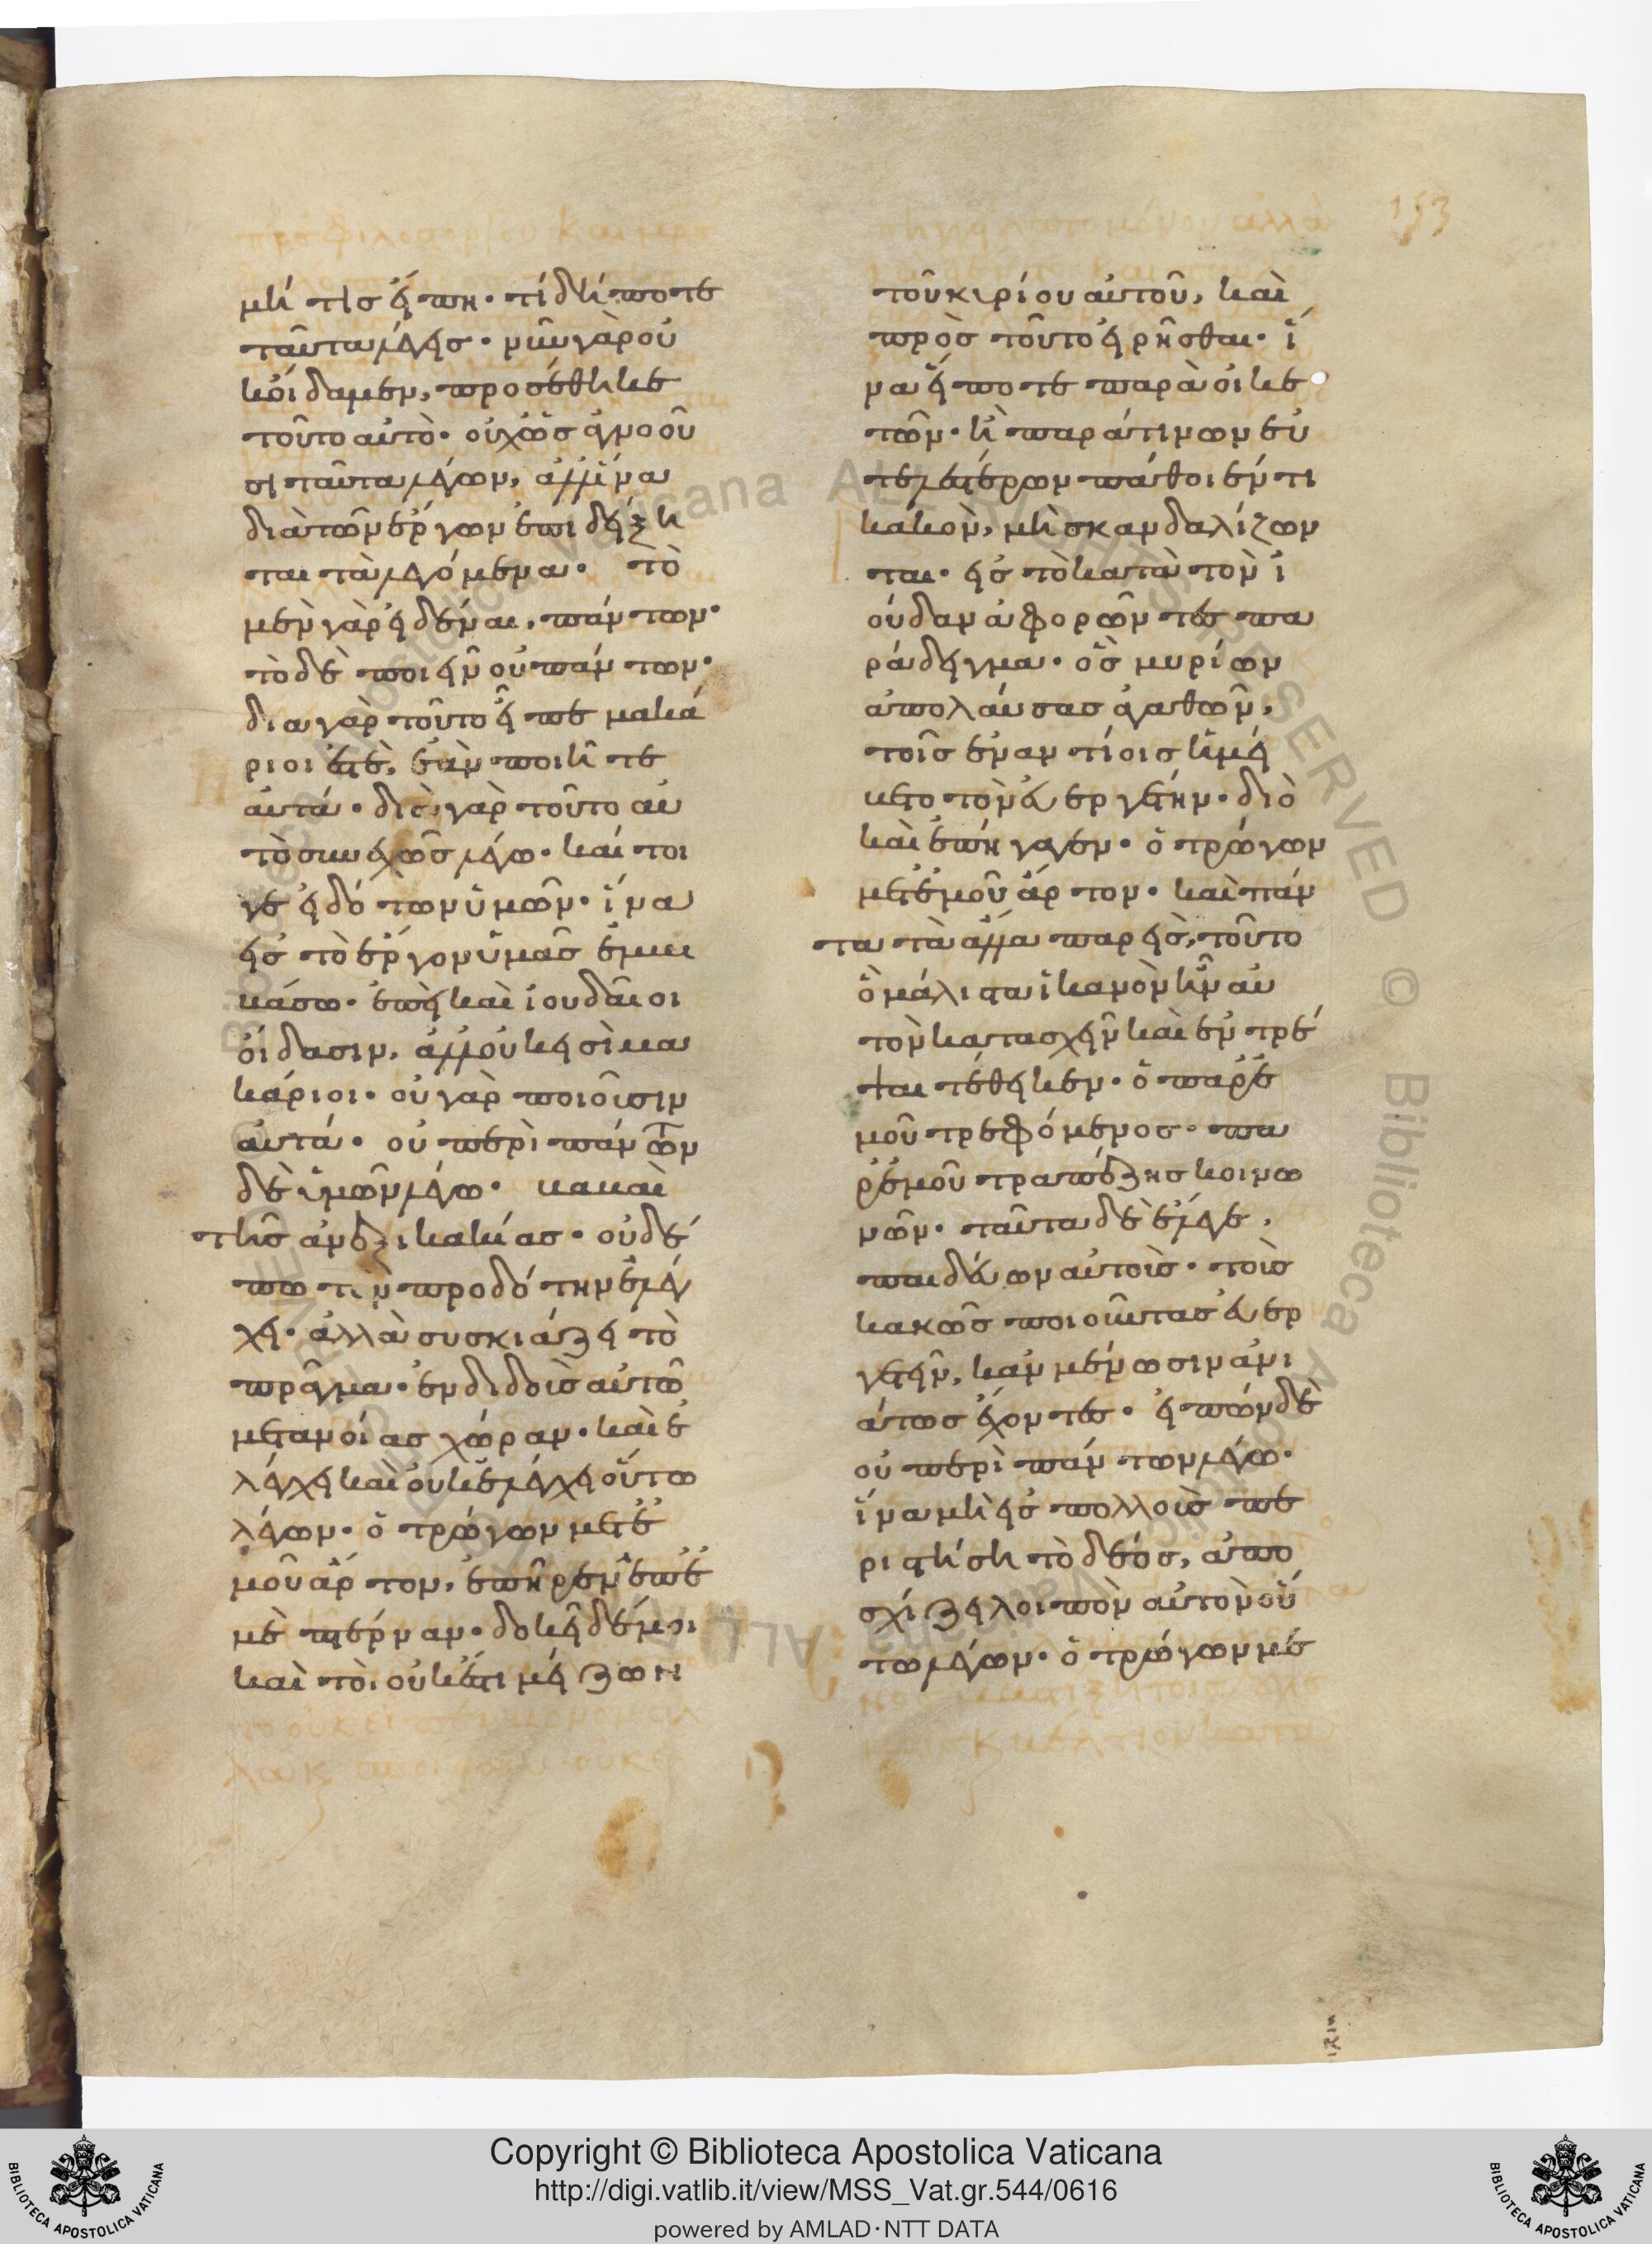 153
μή τις εἴπη· τί δήποτε
ταῦτα λέγεις· νῦν γὰρ οὐ
κ οἴδαμεν, προσέθηκε
τοῦτο αὐτὸ· οὐχ ὡς ἀγνοοῦ
σι ταῦτα λέγων, ἀλλ' ἵνα
διὰ τῶν ἔργων ἐπιδείξη
ται τὰ λεγόμενα· τὸ
μὲν γὰρ εἰδέναι, πάντων·
τὸ δὲ ποιεῖν οὐ πάντων·
δια γὰρ τοῦτο εἶπε μακά
ριοι ἐστὲ, ἐὰν ποιῆτε
αὐτά· διὰ γὰρ τοῦτο αὐ
τὸ συνεχῶς λέγω· καί τοι
γε εἰδότων ὑμῶν· ἵνα
εἰς τὸ ἔργον ὑμᾶς ἐμβι
βάσω· ἐπεὶ καὶ ἰουδαῖοι
οἴδασιν, ἀλλ' οὐκ εἰσὶ μα
κάριοι· οὐ γὰρ ποιοῦσιν
αὐτά· οὐ περὶ πάντων
δὲ ὑμῶν λέγω· βαβαὶ
τῆς ἀνεξικακίας· οὐδέ
πω τὸν προδότην ἐλέγ
χει· ἀλλὰ συσκιάζει τὸ
πρᾶγμα· ἐνδιδοὺς αὐτῶ
μετανοίας χώραν· καὶ ἐ
λέγχει καὶ οὐκ ἐλέγχει οὕτω
λέγων· ὁ τρώγων μετ' ἐ
μοῦ ἄρτον, ἐπῆρεν ἐπ' ἐ
μὲ πτέρναν· δοκεῖ δέ μοι
καὶ τὸ, οὐκ ἔστι μείζων
τοῦ κυρίου αὐτοῦ, καὶ
πρὸς τοῦτο εἰρῆσθαι· ἵ
να εἴποτε παρὰ οἰκε
τῶν· ἢ παρά τινων εὐ
τελεστέρων πάθοιέν τι
κακὸν, μὴ σκανδαλίζων
ται· εἰς τὸ κατὰ τὸν ἰ
ούδαν ἀφορῶντες πα
ράδειγμα· ὃς μυρίων
ἀπολαύσας ἀγαθῶν,
τοῖς ἐναντίοις ἠμεί
βετο τὸν εὐεργέτην· διὸ
καὶ ἐπήγαγεν· ὁ τρώγων
μετ' ἐμοῦ ἄρτον· καὶ πάν
τα τὰ ἄλλα παρεὶς, τοῦτο
ὃ μάλιστα ἱκανὸν ἦν αὐ
τὸν κατασχεῖν καὶ ἐντρέ
ψαι τέθεικεν· ὁ παρ' ἐ
μοῦ τρεφόμενος· πα
ρ' ἐμοῦ τραπέζης κοινω
νῶν· ταῦτα δὲ ἔλεγε,
παιδεύων αὐτοὺς· τοὺς
κακῶς ποιοῦντας εὐερ
γετεῖν, κἂν μένωσιν ἀνι
άτως ἔχοντες· εἰπὼν δὲ
οὐ περὶ πάντων λέγω·
ἵνα μὴ εἰς πολλοὺς πε
ριστήση τὸ δέος, ἀπο
σχίζει λοιπὸν αὐτὸν οὕ
τω λέγων· ὁ τρώγων μετ'
Copyright © Biblioteca Apostolica Vaticana
http://digi.vatlib.it/view/MSS_Vat.gr.544/0616
powered by AMLAD·NTT DATA
BIBLIOTECA APOSTOLICA VATICANA
BIBLIOTECA APOSTOLICA VATICANA